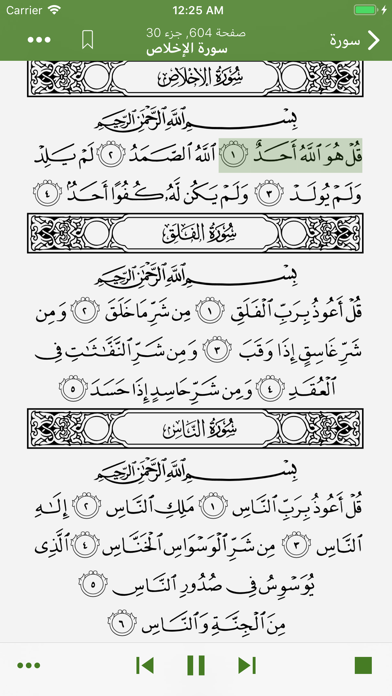 Carrier 12:25 AM
صفحة 604, جزء 30
سورة
سورة الإخلاص
سُورَةُ الإِخْلَاصِ
بِسْمِ ٱللَّهِ ٱلرَّحْمَٰنِ ٱلرَّحِيمِ
قُلْ هُوَ ٱللَّهُ أَحَدٌ ١ ٱللَّهُ ٱلصَّمَدُ ٢ لَمْ يَلِدْ
وَلَمْ يُولَدْ ٣ وَلَمْ يَكُن لَّهُۥ كُفُوًا أَحَدٌۢ ٤
سُورَةُ الْفَلَقِ
بِسْمِ ٱللَّهِ ٱلرَّحْمَٰنِ ٱلرَّحِيمِ
قُلْ أَعُوذُ بِرَبِّ ٱلْفَلَقِ ١ مِن شَرِّ مَا خَلَقَ ٢ وَمِن
شَرِّ غَاسِقٍ إِذَا وَقَبَ ٣ وَمِن شَرِّ ٱلنَّفَّٰثَٰتِ فِى
ٱلْعُقَدِ ٤ وَمِن شَرِّ حَاسِدٍ إِذَا حَسَدَ ٥
سُورَةُ النَّاسِ
بِسْمِ ٱللَّهِ ٱلرَّحْمَٰنِ ٱلرَّحِيمِ
قُلْ أَعُوذُ بِرَبِّ ٱلنَّاسِ ١ مَلِكِ ٱلنَّاسِ ٢ إِلَٰهِ
ٱلنَّاسِ ٣ مِن شَرِّ ٱلْوَسْوَاسِ ٱلْخَنَّاسِ ٤ ٱلَّذِى
يُوَسْوِسُ فِى صُدُورِ ٱلنَّاسِ ٥
مِنَ ٱلْجِنَّةِ وَٱلنَّاسِ ٦